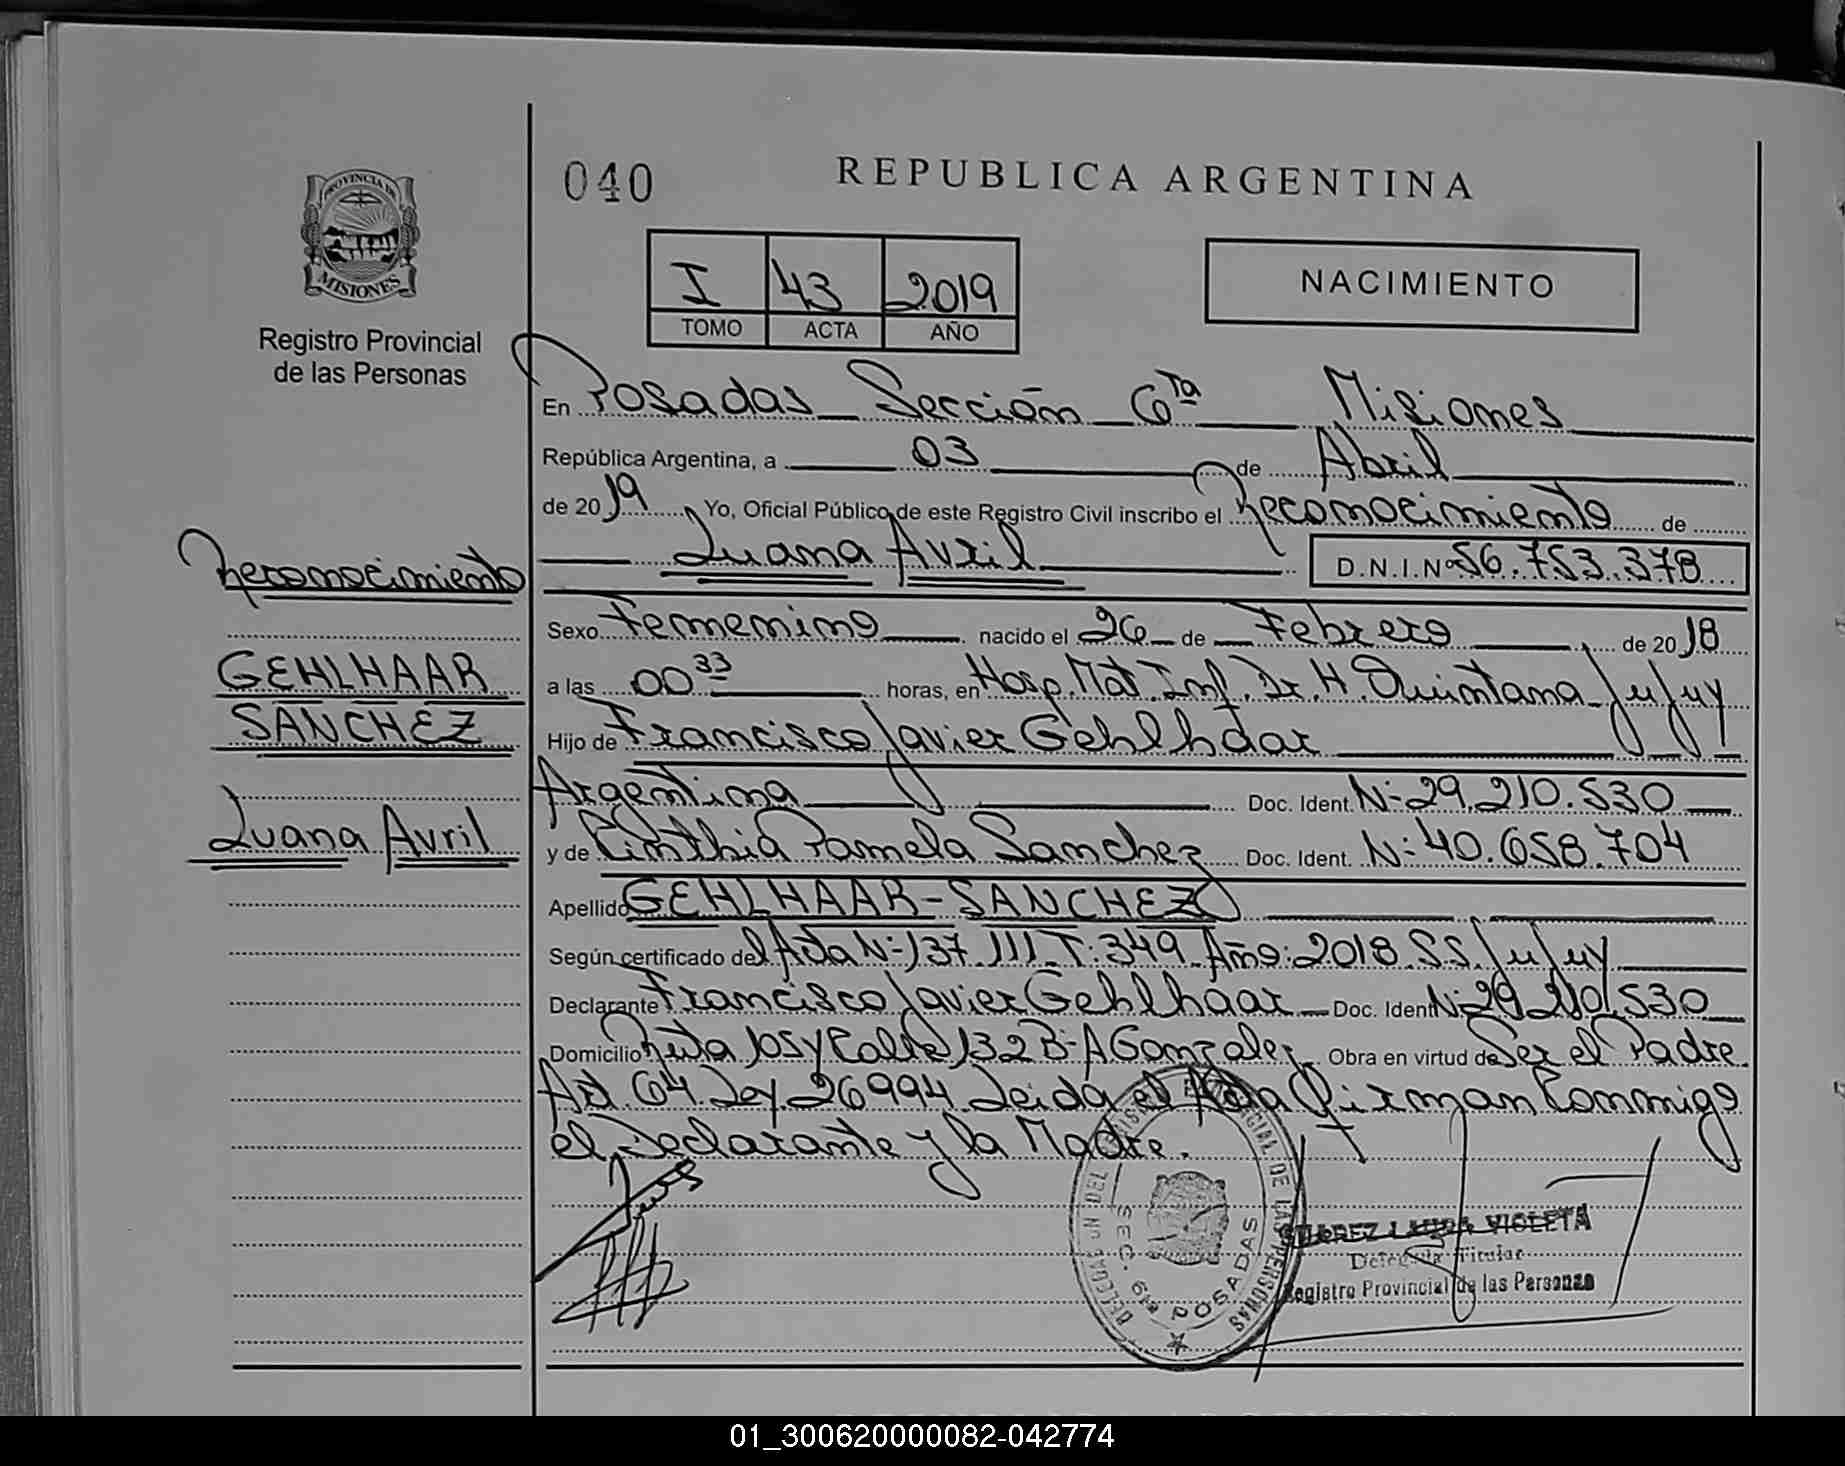 040
REPUBLICA ARGENTINA
PROVINCIA DE
MISIONES
Registro Provincial
de las Personas
I 43 2019
TOMO ACTA AÑO
NACIMIENTO
En Posadas Sección 6ta Misiones
República Argentina, a 03 de Abril
de 2019 Yo, Oficial Público de este Registro Civil inscribo el Reconocimiento de
Luana Avril D.N.I.Nº 56.753.378
Reconocimiento
GEHLHAAR
SANCHEZ
Luana Avril
Sexo Femenino nacido el 26 de Febrero de 2018
a las 00 33 horas, en Hosp. Mat. Inf. Dr. H. Quintana Jujuy
Hijo de Francisco Javier Gehlhaar
Argentina Doc. Ident. N: 29.210.530
y de Cinthia Pamela Sanchez Doc. Ident. N: 40.658.704
Apellido GEHLHAAR-SANCHEZ
Según certificado del Acta N: 137 III T: 349 Año: 2018 S.S. Jujuy
Declarante Francisco Javier Gehlhaar Doc. Ident N: 29.210.530
Domicilio Ruta 105 y Calle 132 B: A Gonzalez Obra en virtud de Ser el Padre
Art. 64 Ley 26994 Leida el Acta Firman Conmigo
el Declarante y la Madre.
DELEGACION DEL REGISTRO PROVINCIAL DE LAS PERSONAS
SEC. 6ta POSADAS
LAURA VIOLETA
Delegada Titular
Registro Provincial de las Personas
01_300620000082-042774